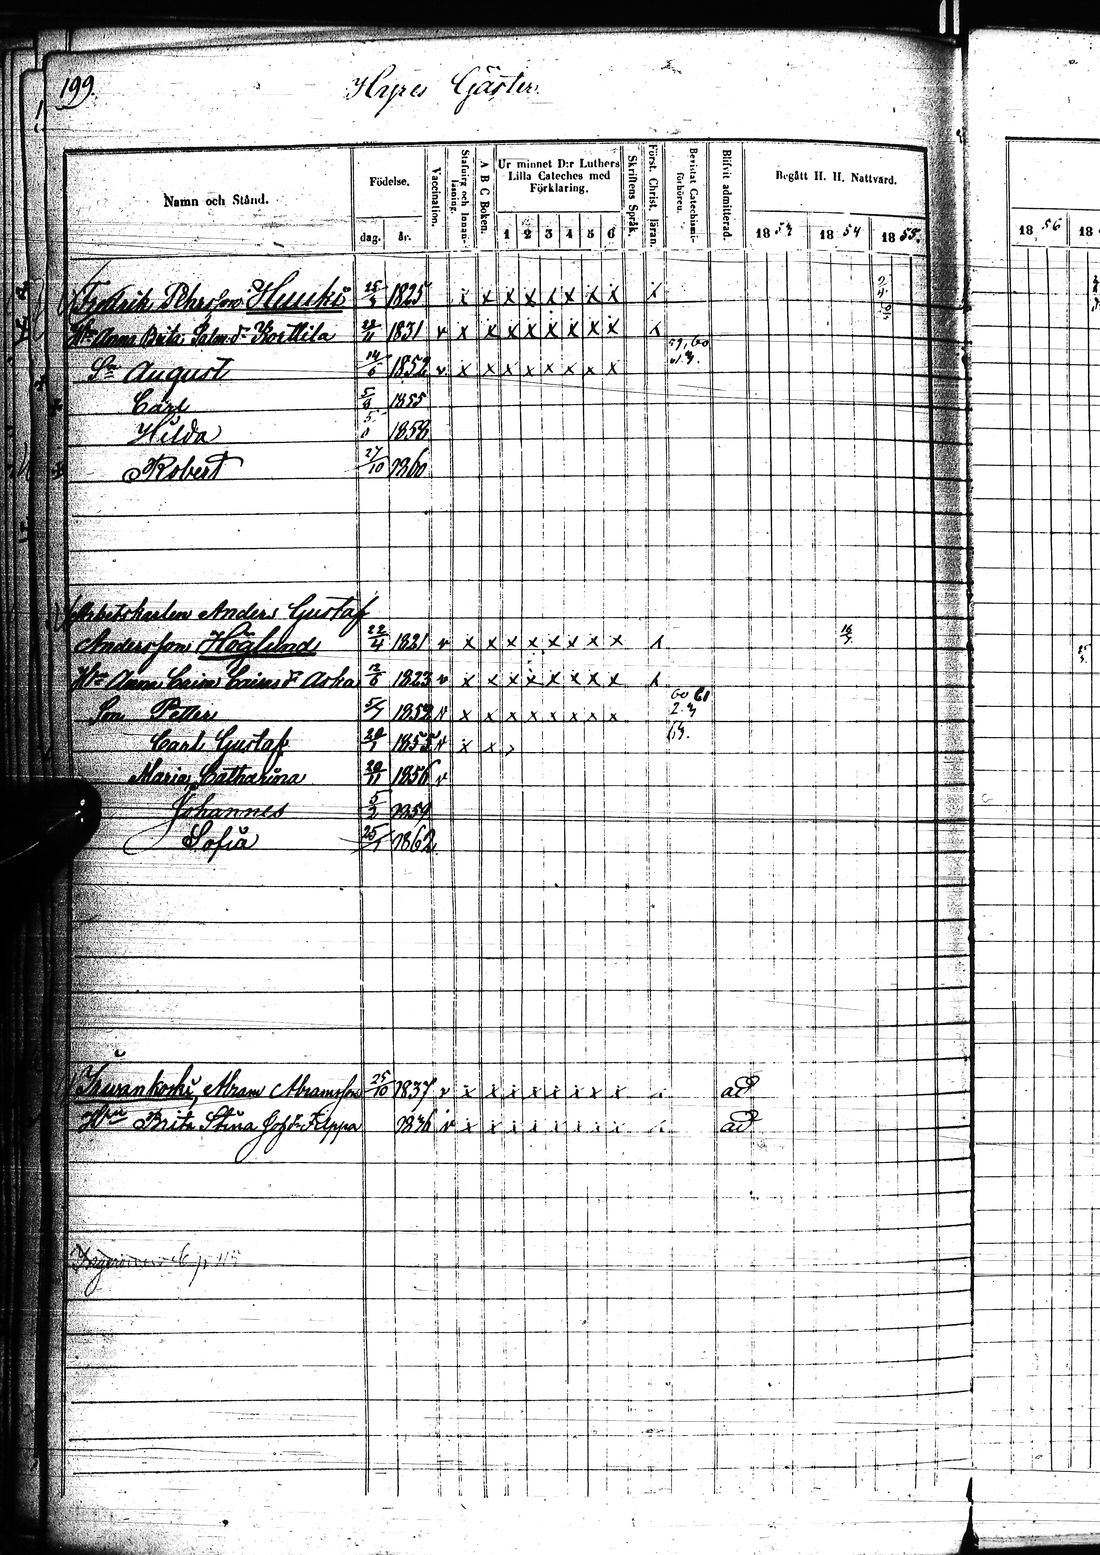 199.
Hyres Gäster.
Namn och Stånd.
Födelse.
dag.
år.
Vaccination.
Stafning och Innanläsning.
A B C Boken.
Ur minnet D:r Luthers Lilla Cateches med Förklaring.
1 2 3 4 5 6
Skriftens Språk.
Först. Christ. läran.
Bevistat Catechismiförhören.
Blifvit admitterad.
Begått H. H. Nattvard.
1853 1854 1855. 1856 18
Fredrik Pehrsson Huuki 25/3 1825 x x x x x x x x x
Hu Anna Brita Salm.dr Korttila 1831 v x x x x x x x x x
59, 60
Sn August 14/6 1852 v x x x x x x x x
Carl 5/8 1855
Hilda 1858
Robert 27/10 1860
Arbetskarlen Anders Gustaf
Andersson Höglund 22/4 1821 v x x x x x x x x x
Hu Anna Caisa Dr Aska 12/6 1823 v x x x x x x x x x
60 61
Son Petter 5/7 1852 v x x x x x x x x
63.
Carl Gustaf 1855 v x x
Maria Catharina 20/11 1856 v
Johannes 5/2 1859
Sofia 25/1 1862
Abram Abramsson 25/10 1837 v x x x x x x x x ad
Hu Brita Stina Joh.dr Filppa 1836 v x x x x x x x x ad